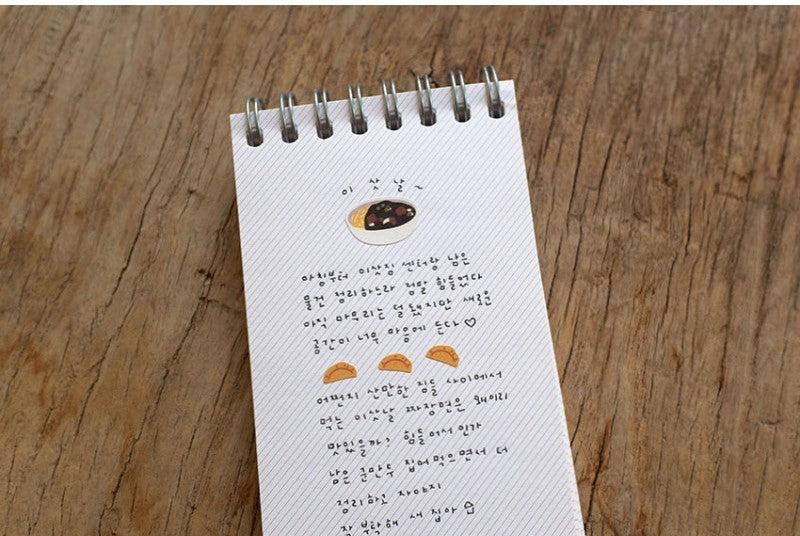 이삿날~
아침부터 이삿짐 센터랑 남은
물건 정리하느라 정말 힘들었다
아직 마무리는 덜 됐지만 새로운
공간이 너무 마음에 든다♡
어쩐지 산만한 짐들 사이에서
먹는 이삿날 짜장면은 왜이리
맛있을까? 힘들어서인가
남은 군만두 집어먹으면서 더
정리하고 자야지
잘 부탁해 새 집아